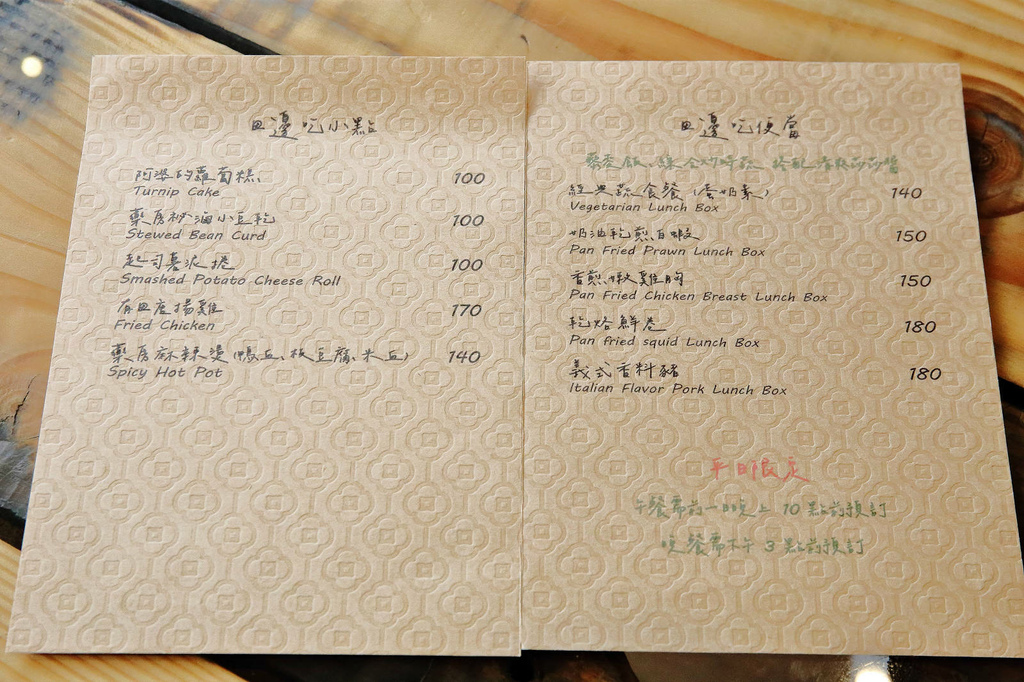 田邊吃小點
阿婆的蘿蔔糕 100
Turnip Cake
藥房秘滷小豆乾 100
Stewed Bean Curd
起司薯泥捲 100
Smashed Potato Cheese Roll
有田唐揚雞 170
Fried Chicken
藥房麻辣燙(鴨血、板豆腐、米血) 140
Spicy Hot Pot
田邊吃便當
藜麥飯、綜合炒時蔬 搭配 莎莎醬
經典蔬食餐(蛋奶素) 140
Vegetarian Lunch Box
奶油乾煎白蝦 150
Pan Fried Prawn Lunch Box
香煎嫩雞胸 150
Pan Fried Chicken Breast Lunch Box
乾烙鮮卷 180
Pan fried squid Lunch Box
義式香料豬 180
Italian Flavor Pork Lunch Box
平日限定
午餐需前一日晚上10點前預訂
晚餐需下午3點前預訂